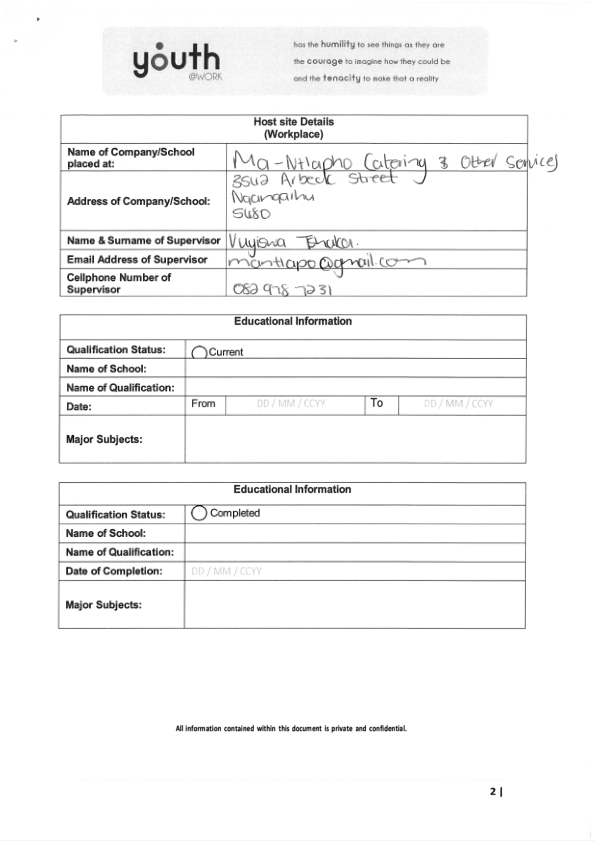 youth
@WORK
has the humility to see things as they are
the courage to imagine how they could be
and the tenacity to make that a reality
Host site Details
(Workplace)
Name of Company/School placed at: Ma-Ntlapho Catering & Other Services
Address of Company/School: 3542 Arbeck Street
5480
Name & Surname of Supervisor Vuyiswa
Email Address of Supervisor mantlapo@gmail.com
Cellphone Number of Supervisor 082 978 7231
Educational Information
Qualification Status: Current
Name of School:
Name of Qualification:
Date: From DD / MM / CCYY To DD / MM / CCYY
Major Subjects:
Educational Information
Qualification Status: Completed
Name of School:
Name of Qualification:
Date of Completion: DD / MM / CCYY
Major Subjects:
All information contained within this document is private and confidential.
2 |